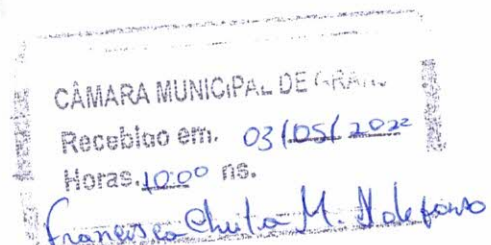 CÂMARA MUNICIPAL DE
Recebido em. 03/05/2022
Horas. 10:00 hs.
Francisca M. Ildefonso